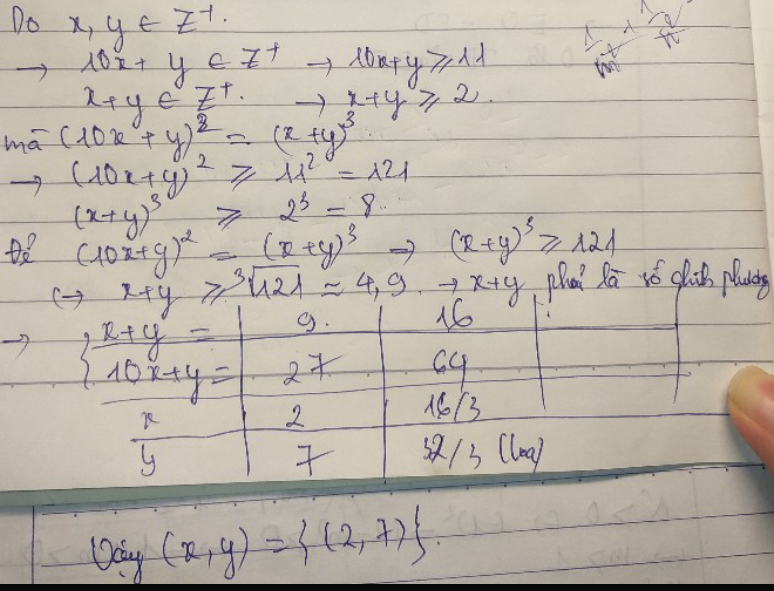 Do x, y ∈ Z⁺.
→ 10x + y ∈ Z⁺ → 10x+y ⩾ 11
x+y ∈ Z⁺. → x+y ⩾ 2.
mà (10x + y)² = (x+y)³
→ (10x+y)² ⩾ 11² = 121
(x+y)³ ⩾ 2³ = 8
Để (10x+y)² = (x+y)³ → (x+y)³ ⩾ 121
↔ x+y ⩾ ³√121 ≈ 4,9. → x+y phải là số chính phương
→ { x+y = | 9. | 16
10x+y = | 27 | 64
x | 2 | 16/3
y | 7 | 32/3 (loại)
Vậy (x,y) = {(2,7)}.